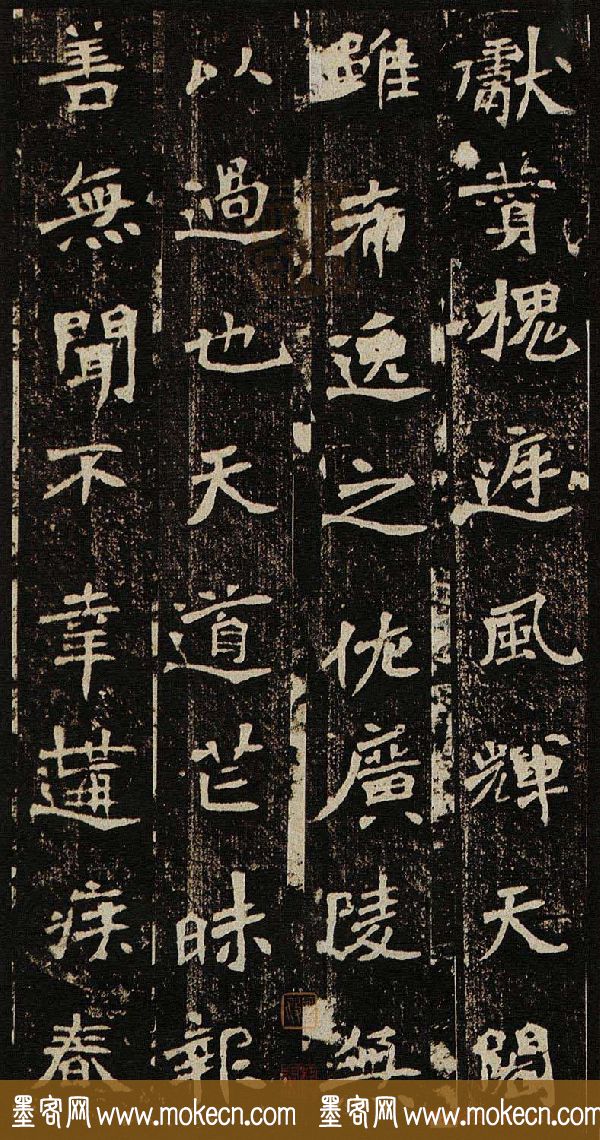 獻賛槐庭風輝天閣
雖逸之廣陵無
以過也天道芒昧報
善無聞不幸遘疾春
墨客网 www.mokecn.com 墨客网 www.mokecn.com